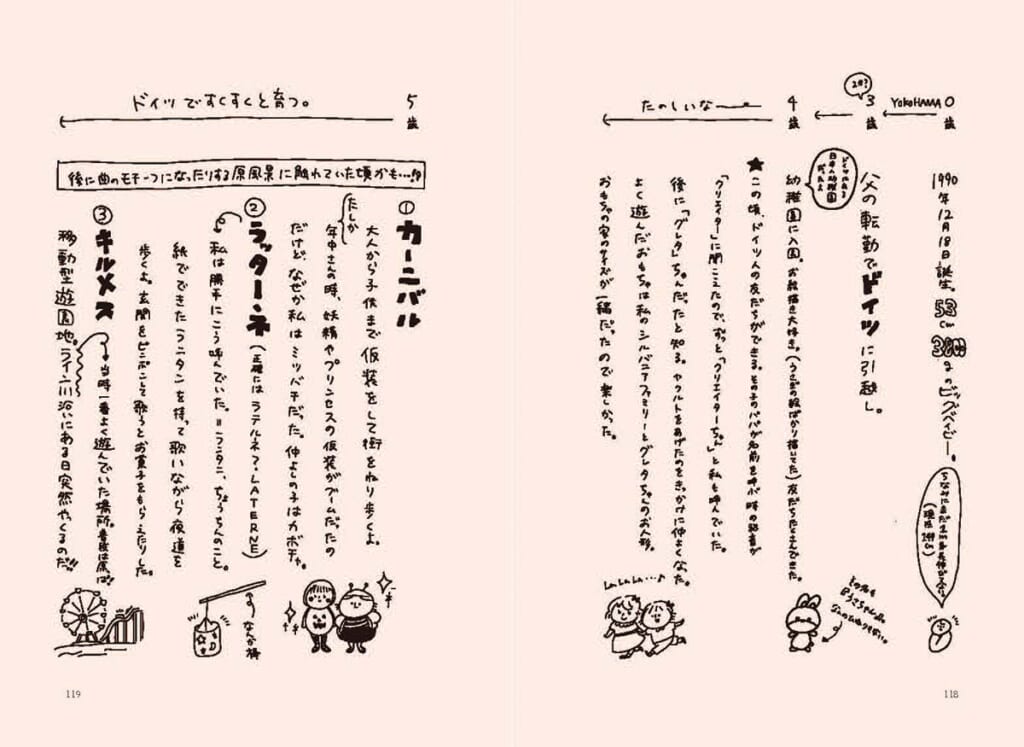 YOKOHAMA 0歳
3歳
4歳
たのしいなー
1990年12月18日誕生。53cm 3800gのビッグベイビー。
父の転勤でドイツに引越し。
ドイツにある日本人幼稚園だったよ
幼稚園に入園。お絵描き大好き。(うさぎの絵ばかり描いてた)友だちたくさんできた。
★この頃、ドイツ人の友だちができる。その子のパパが名前を呼ぶ時の発音が
「クリエイター」に聞こえたので、ずっと「クリエイターちゃん」と私も呼んでいた。
後に「グレタ」ちゃんだったと知る。ヤクルトをあげたのをきっかけに仲よくなった。
よく遊んだおもちゃは私のシルバニアファミリーとグレタちゃんのお人形。
おもちゃの家のサイズが一緒だったので楽しかった。
LaLaLa...♪
118
5歳
ドイツですくすくと育つ。
後に曲のモチーフになったりする原風景に触れていた頃かも…!?
①カーニバル
大人から子供まで仮装をして街をねり歩くよ。
たしか
年中さんの時、妖精やプリンセスの仮装がブームだったの
だけど、なぜか私はミツバチだった。仲よしの子はカボチャ。
②ラッターネ(正確にはラテルネ?・LATERNE)
私は勝手にこう呼んでいた。=ランタン、ちょうちんのこと。
紙でできたランタンを持って歌いながら夜道を
歩くよ。玄関をピンポンして歌うとお菓子をもらえたりした。
なんか棒
③キルメス
当時一番よく遊んでいた場所。普段は原っぱ!!
移動型遊園地。ライン川沿いにある日突然やってくるのだ!!
119